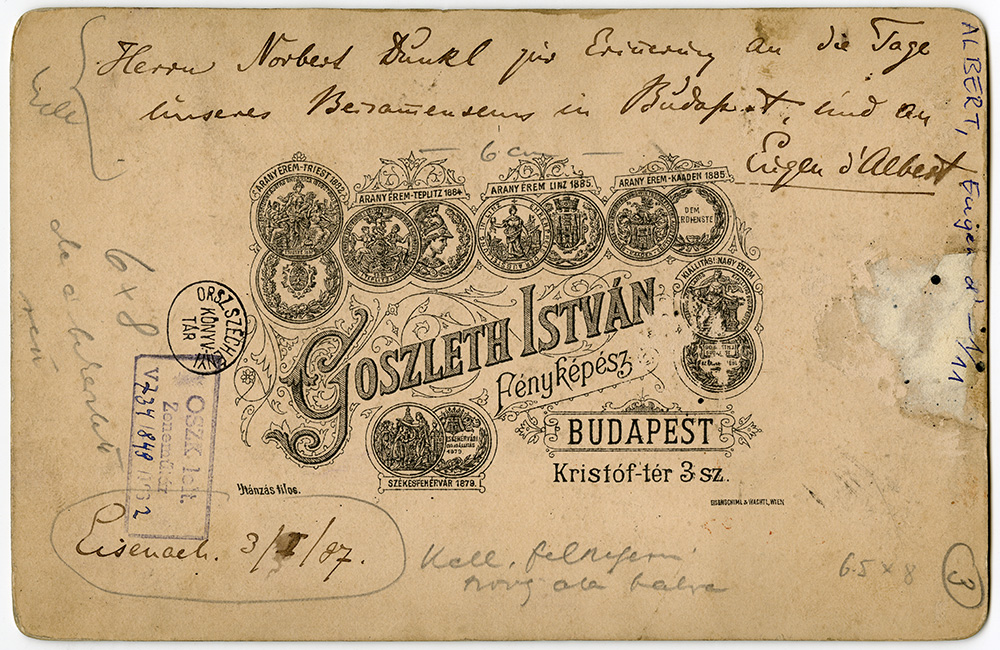 Herrn Norbert Dunkl zur Erinnerung an die Tage
unseres Beisammenseins in Budapest, und an
Eugen d'Albert
ALBERT, Eugen d' 1/11
6 cm
6 x 8
ARANY ÉREM-TRIEST 1882
ARANY ÉREM-TEPLITZ 1884
ARANY ÉREM LINZ 1885
ARANY ÉREM-KAADEN 1885
DEM
VERDIENSTE
KIÁLLÍTÁSI NAGY ÉREM
ORSZ. SZÉCH.
KÖNYV
TÁR
GOSZLETH ISTVÁN
Fényképész
BUDAPEST
Kristóf-tér 3 sz.
SZÉKESFEHÉRVÁR 1879.
Utánzás tilos.
EISENSCHIML & WACHTL, WIEN.
OSZK. lelt.
Zeneműtár
Eisenach. 3/I/87.
6.5 x 8
3